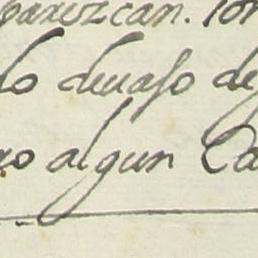 parezcan. lo
lo deuaso de
ro algun Ca